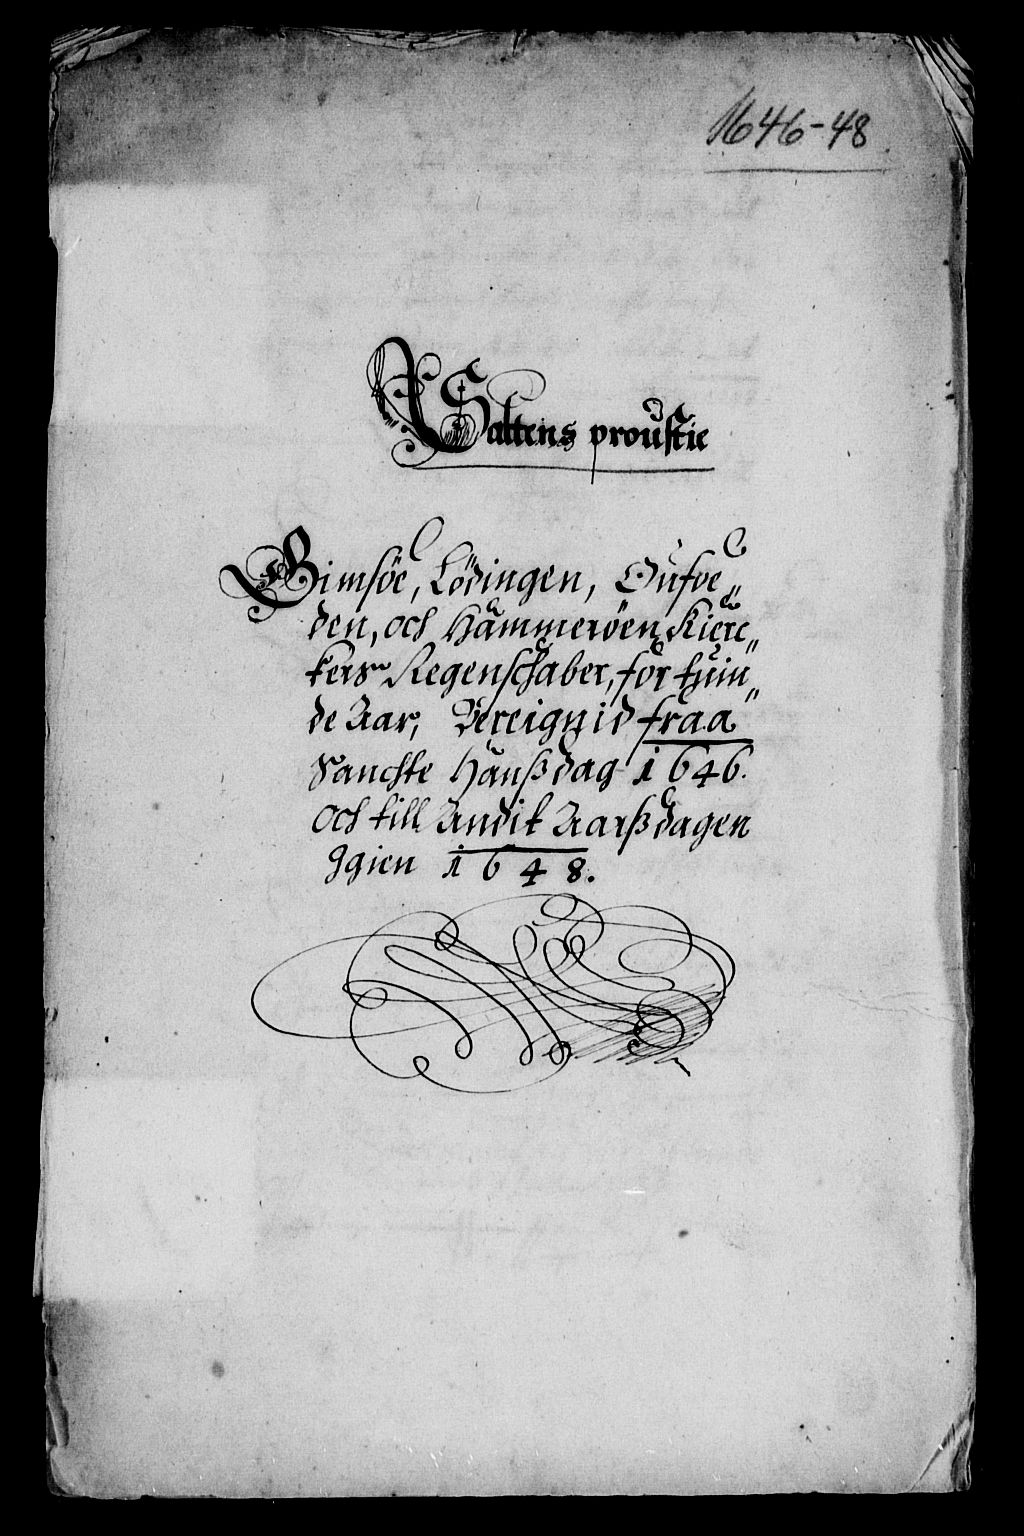 1646-48
Saltens proustie
Gimsöe, Lödingen, Oufoe„
den, och Hammeröen Kierc„
kers Regenschaber, for tuin„
de Aar, Bereignid fraa
Sanchte Hanßdag 1646.
och till Andit Aarßdagen
Igien 1648.